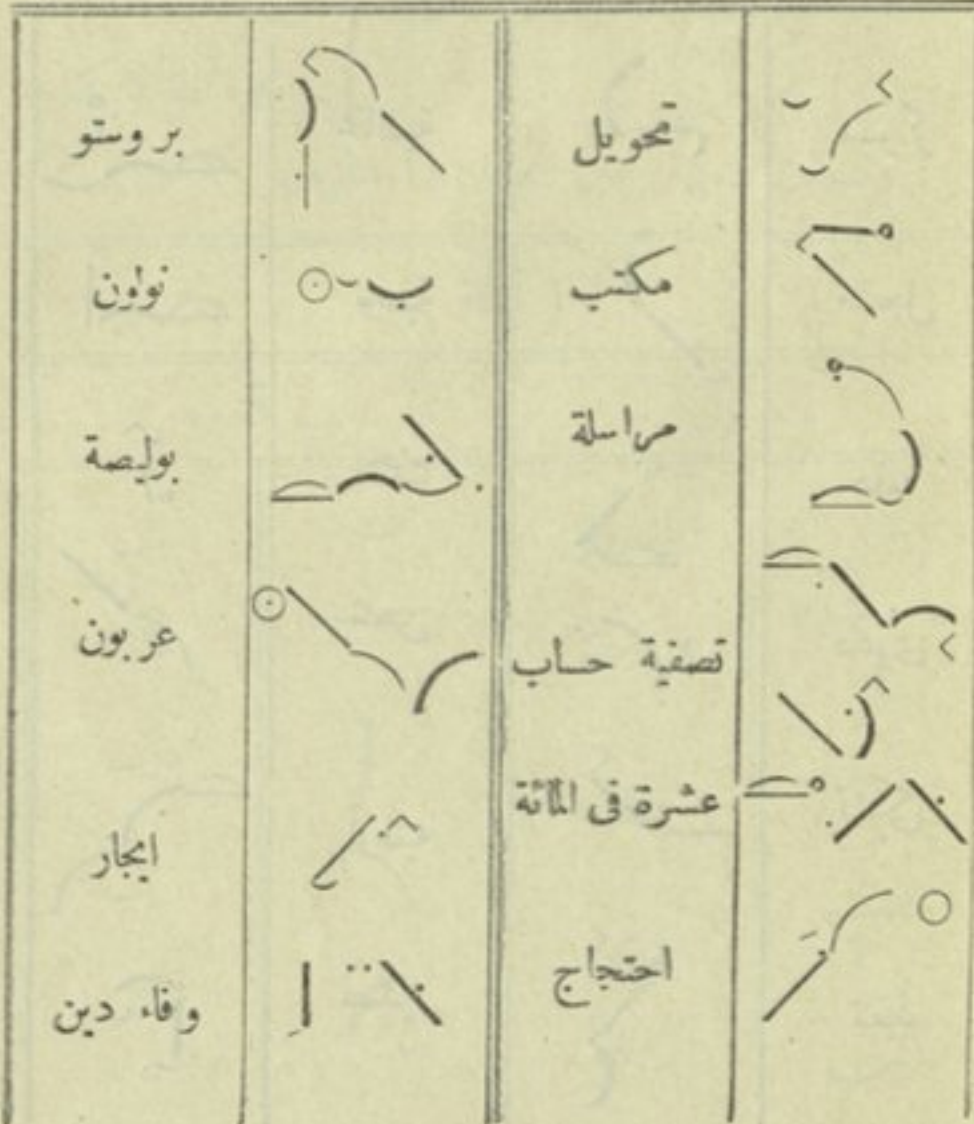 تحويل
مكتب
مراسلة
تصفية حساب
عشرة فى المائة
احتجاج
بروستو
نولون
بوليصة
عربون
ايجار
وفاء دين